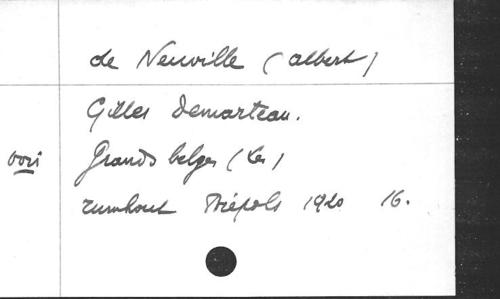 de Neuville (Albert)
Gilles Demarteau.
voir Grands belges (Les)
Turnhout Brépols 1920 16.